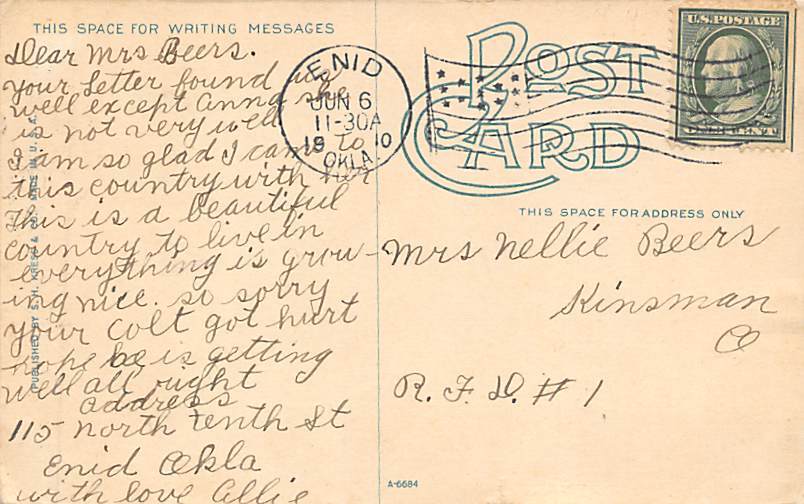 THIS SPACE FOR WRITING MESSAGES
Dear Mrs Beers.
your letter found us
well except Anna she
is not very well
I am so glad I came to
this country with her
This is a beautiful
country to live in
everything is grow-
ing nice. so sorry
your colt got hurt
hope he is getting
well all right
address
115 North tenth St
Enid Okla
with love Allie
PUBLISHED BY S. H. KRESS & CO. MADE IN U.S.A.
ENID
JUN 6
11-30A
1910
OKLA.
POST
CARD
U.S. POSTAGE
THIS SPACE FOR ADDRESS ONLY
Mrs Nellie Beers
Kinsman
O
R. F. D. # 1
A-6684